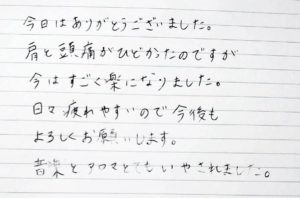 今日はありがとうございました。
肩と頭痛がひどかったのですが
今はすごく楽になりました。
日々疲れやすいので今後も
よろしくお願いします。
音楽とアロマとてもいやされました。